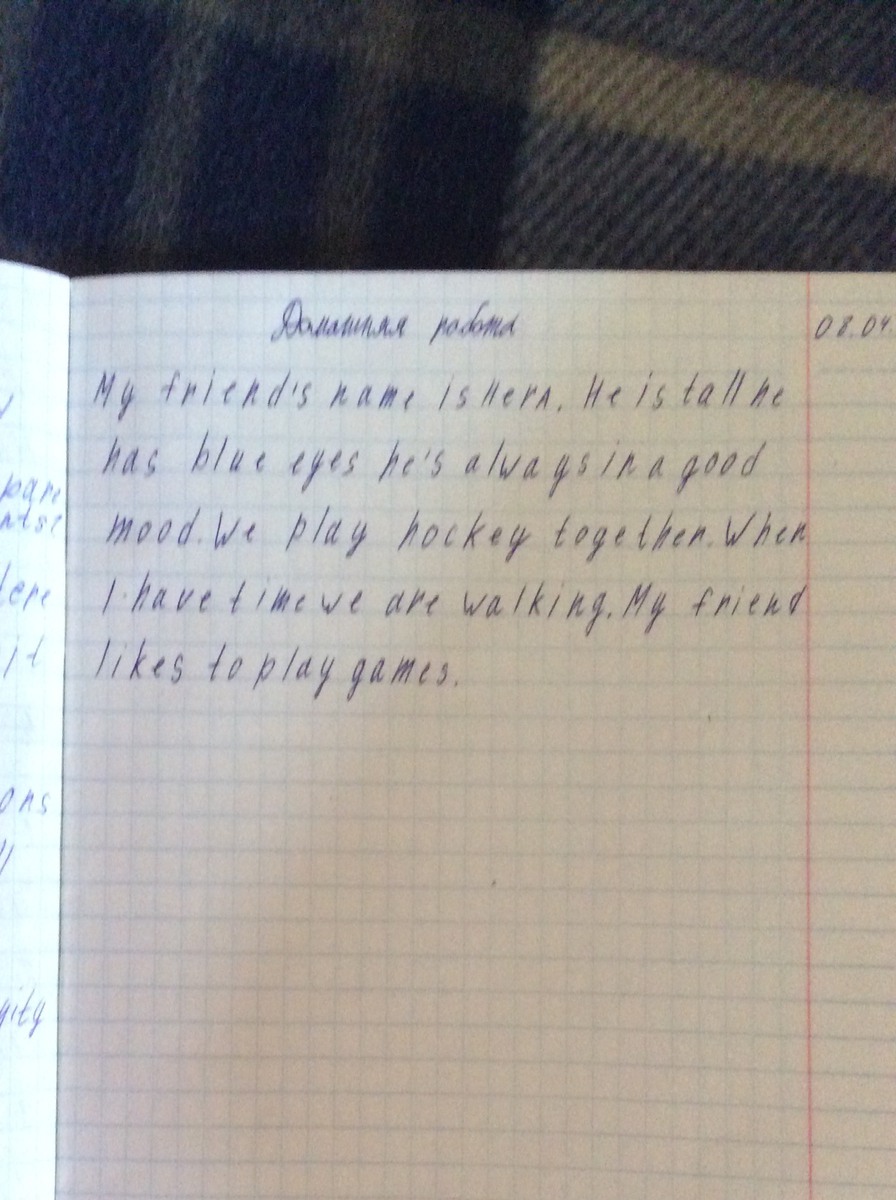 Домашняя работа
08.04.
My friend's name is Ilya. He is tall he
has blue eyes he's always in a good
mood. We play hockey together. When
I have time we are walking. My friend
likes to play games.
pare
ntse
tere
it
ons
gity